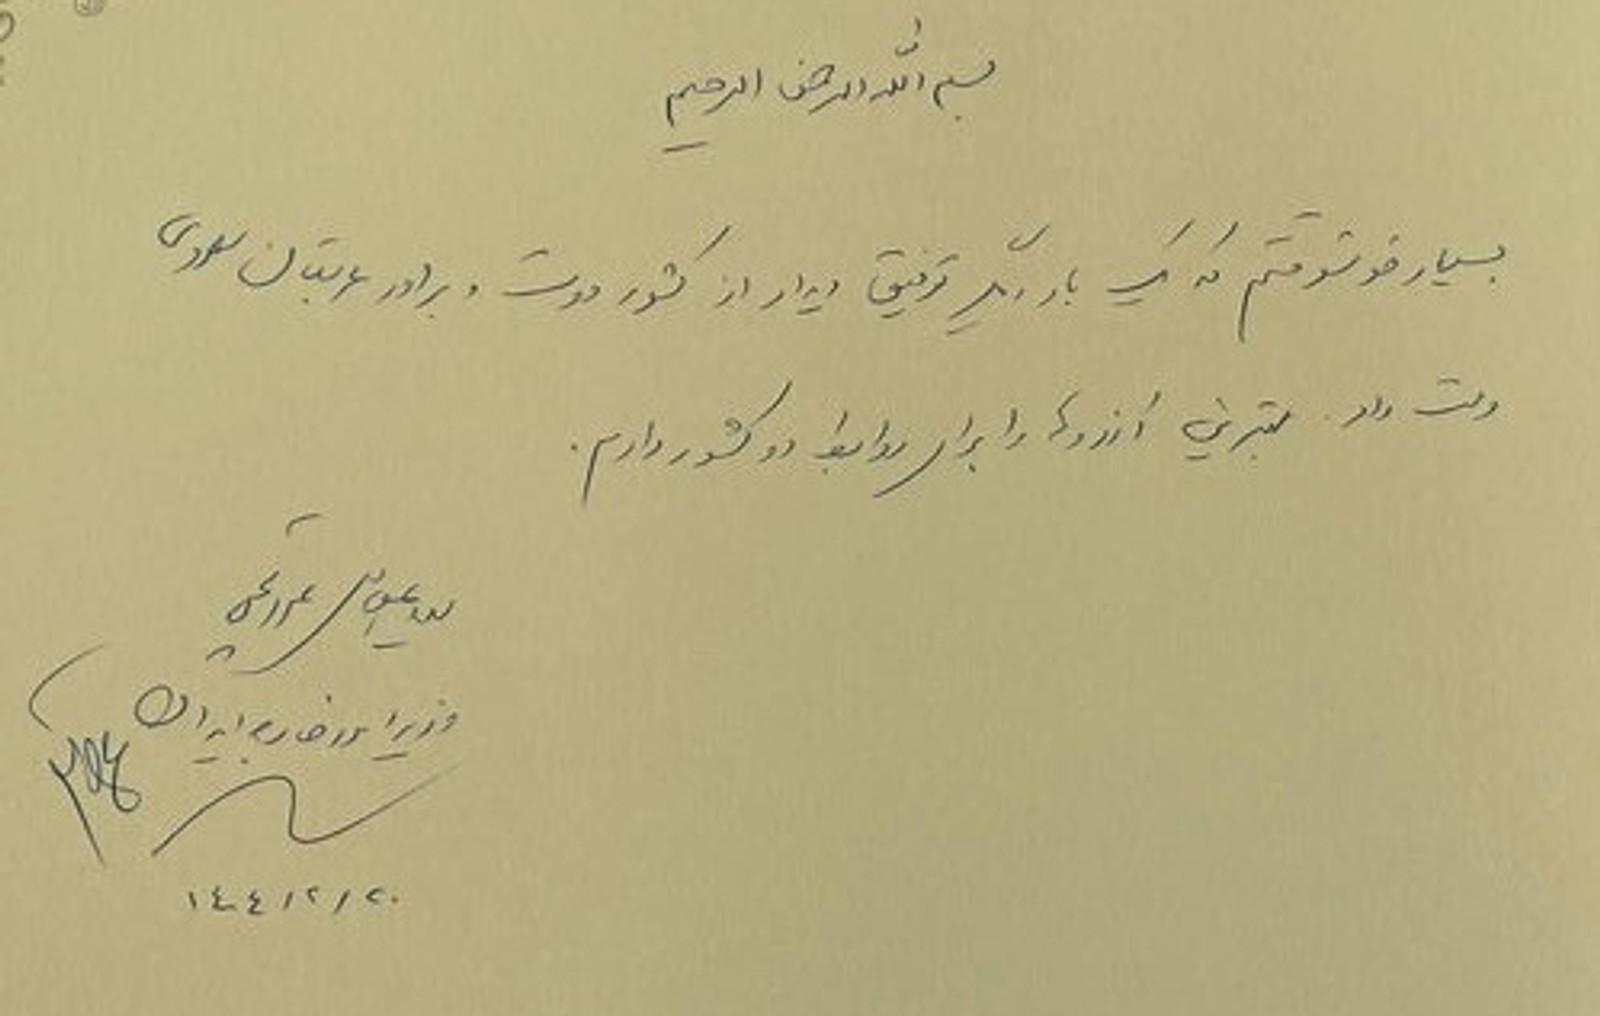 بسم الله الرحمن الرحیم
بسیار خوشوقتم که یک بار دیگر توفیق دیدار از کشور دوست و برادر عربستان سعودی
دست داد. بهترین آرزوها را برای روابط دو کشور دارم.
سید عباس عراقچی
وزیر امور خارجه ایران
۱٤۰٤/۲/۲۰